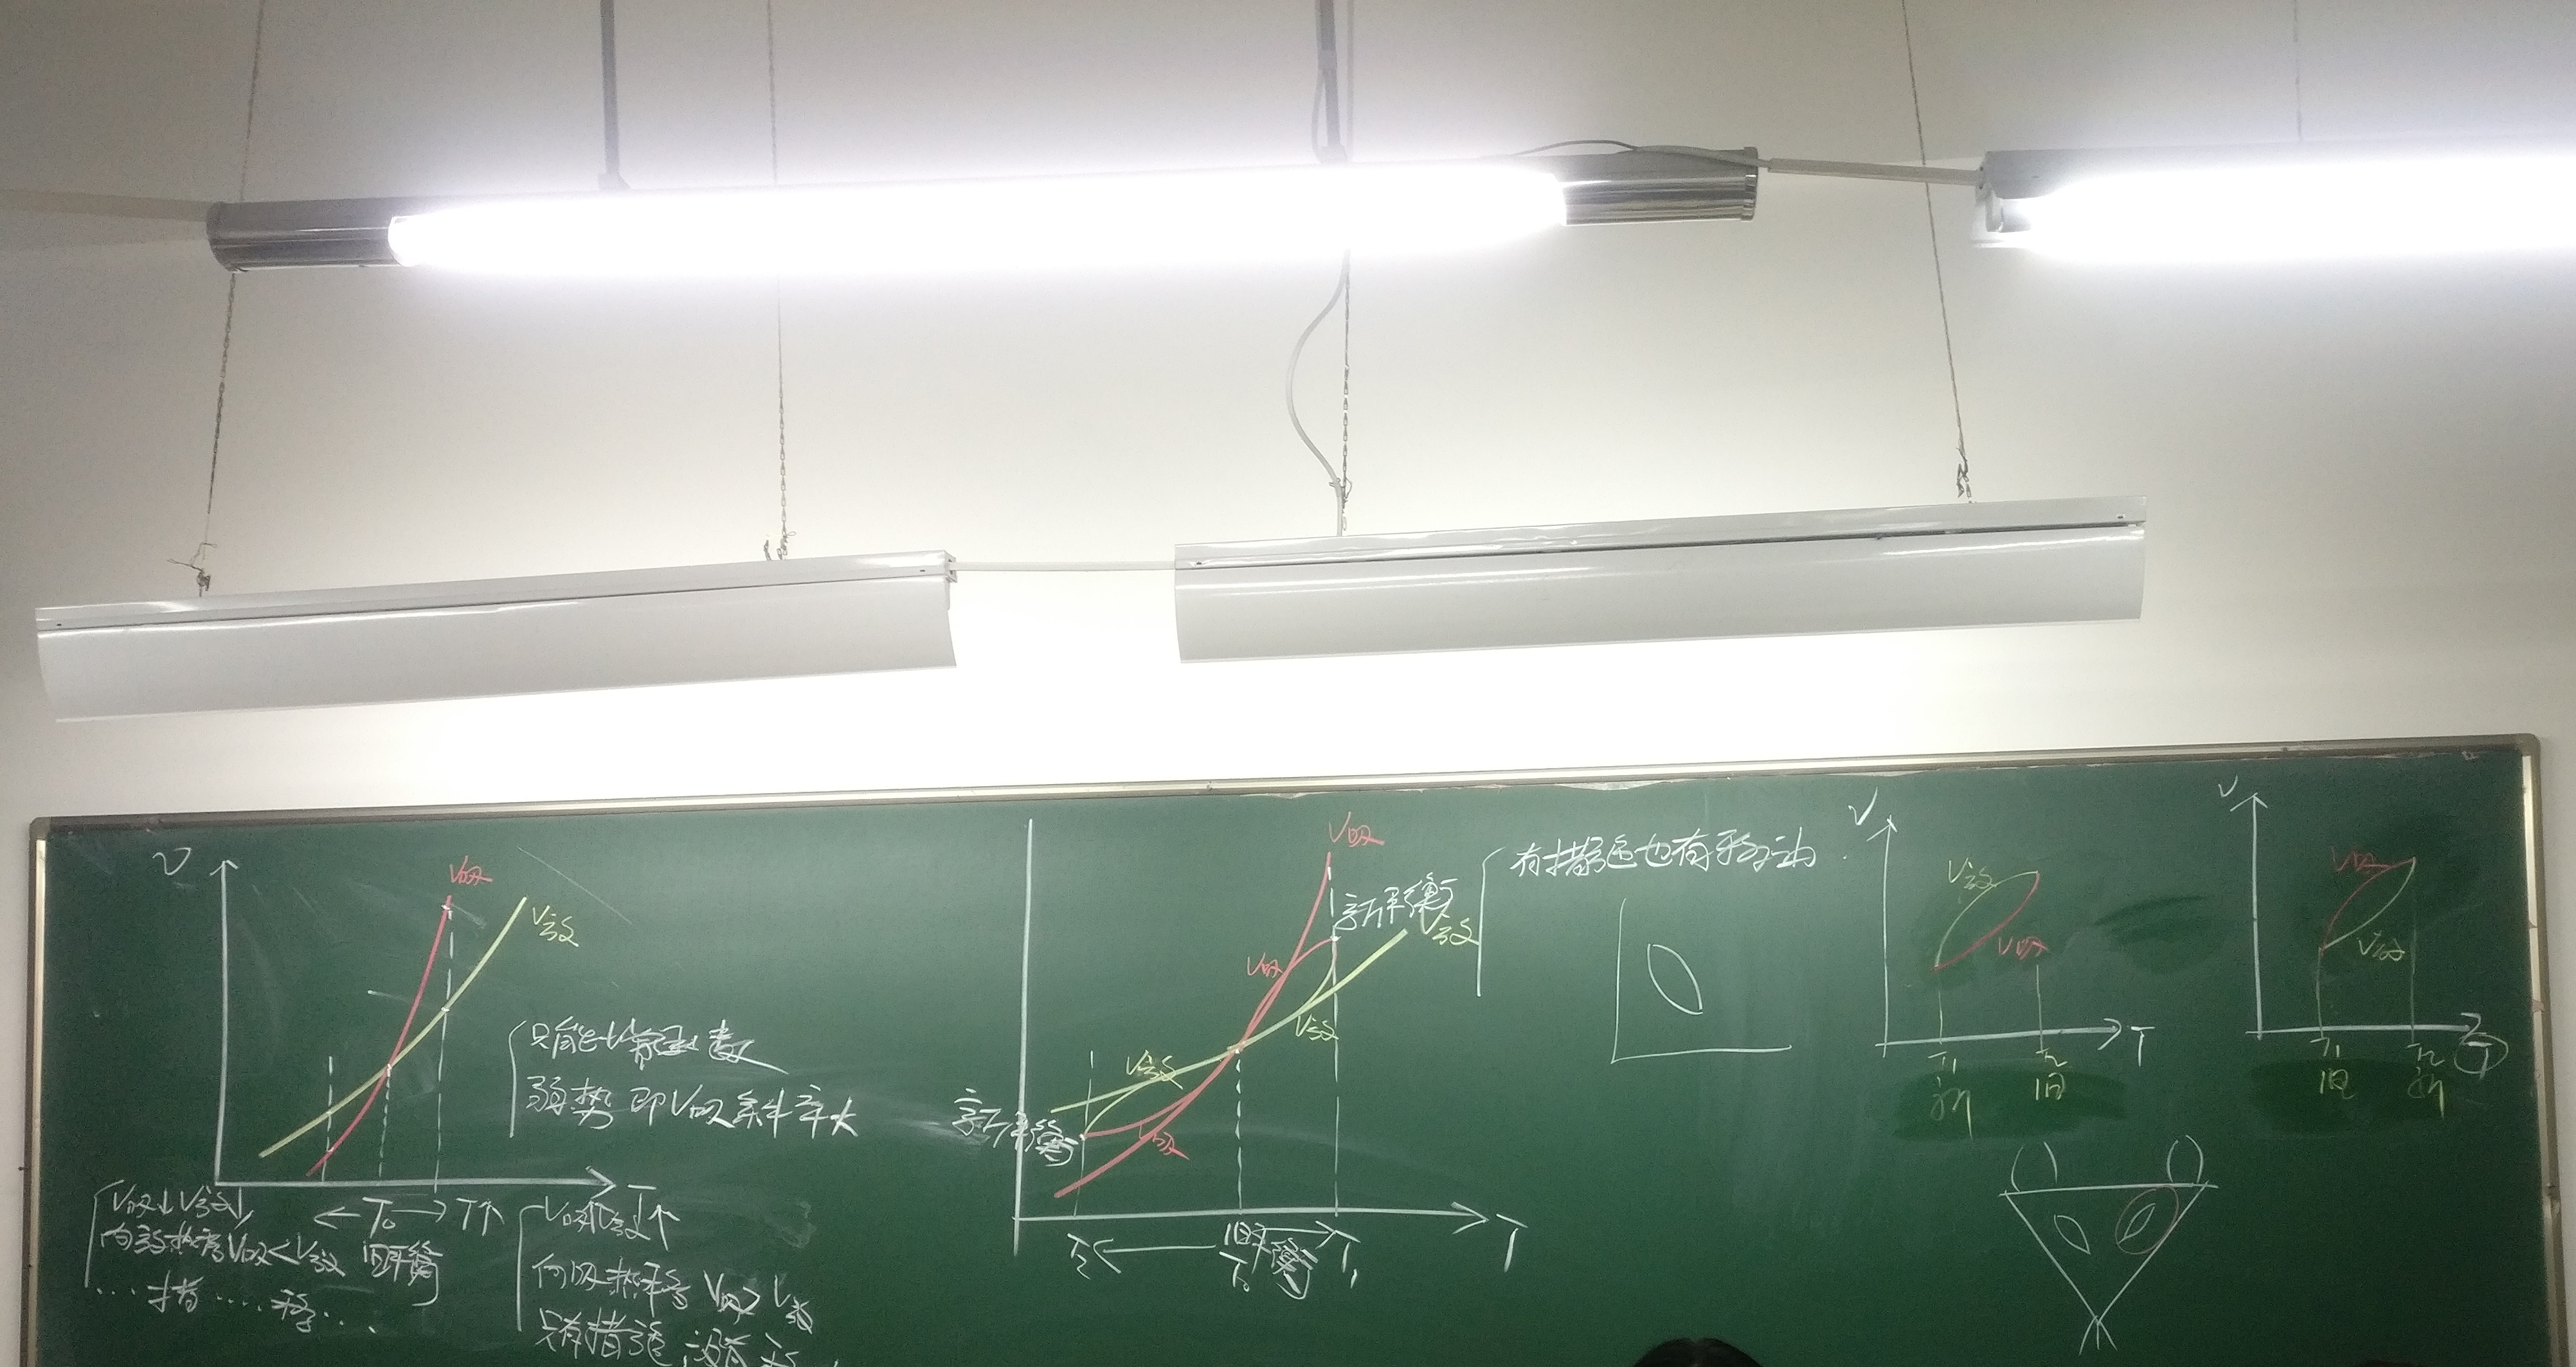 v
V吸
V放
只能
弱势 即V吸斜率大
T₀ T↑
V吸↓V放↓
V吸<V放 旧平衡
V吸↑V放↑
向吸热移 V吸>V放
只有
V吸
新平衡
V放
V吸
V放
V放
新平衡
V吸
T
T₂
旧平衡
T₀
T₁
有 也有移动
V
V放
V吸
T
T₁
新
T₂
旧
V
V吸
V放
T
T₁
旧
T₂
新